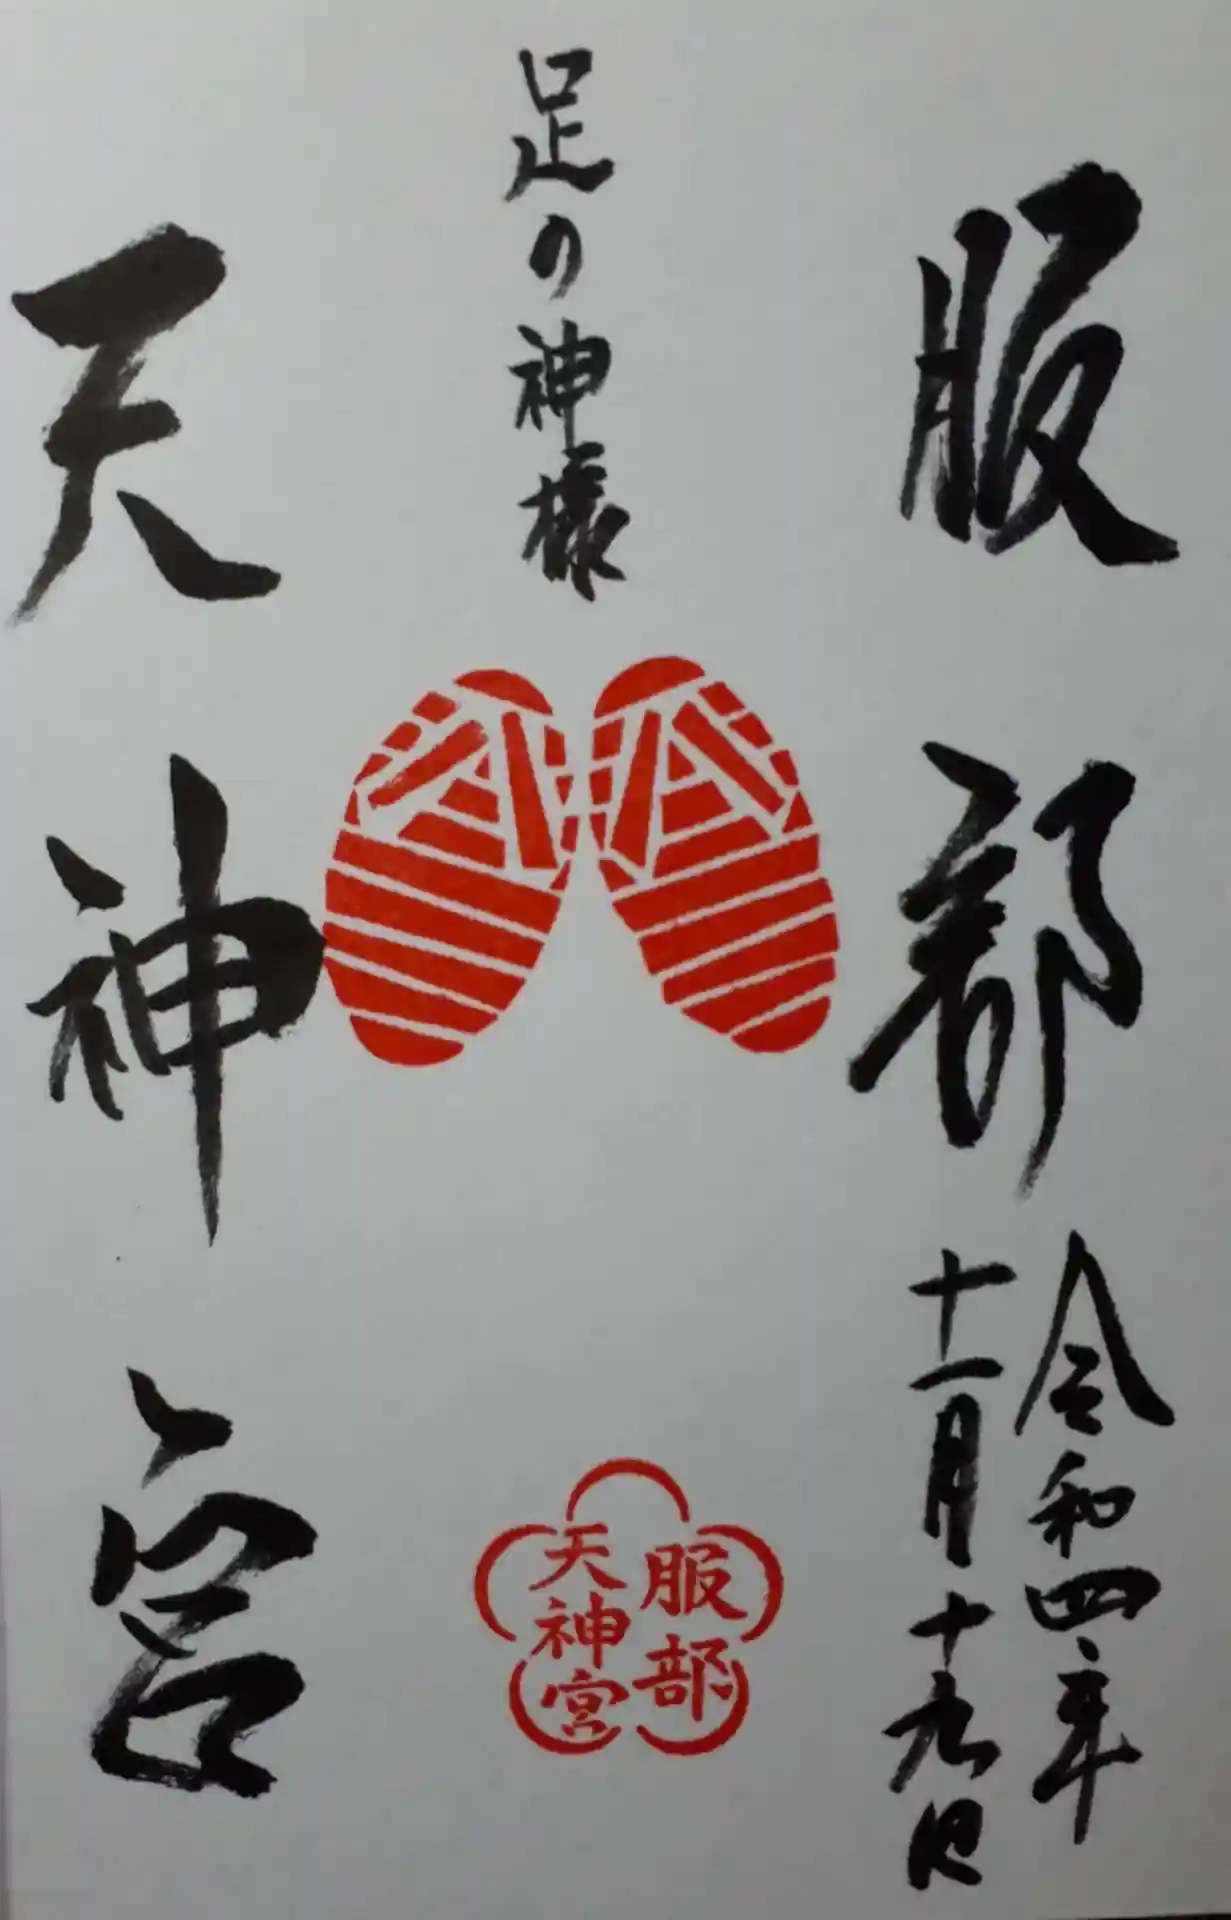 服部
令和四年
十一月十九日
足の神様
服部
天神宮
天神宮